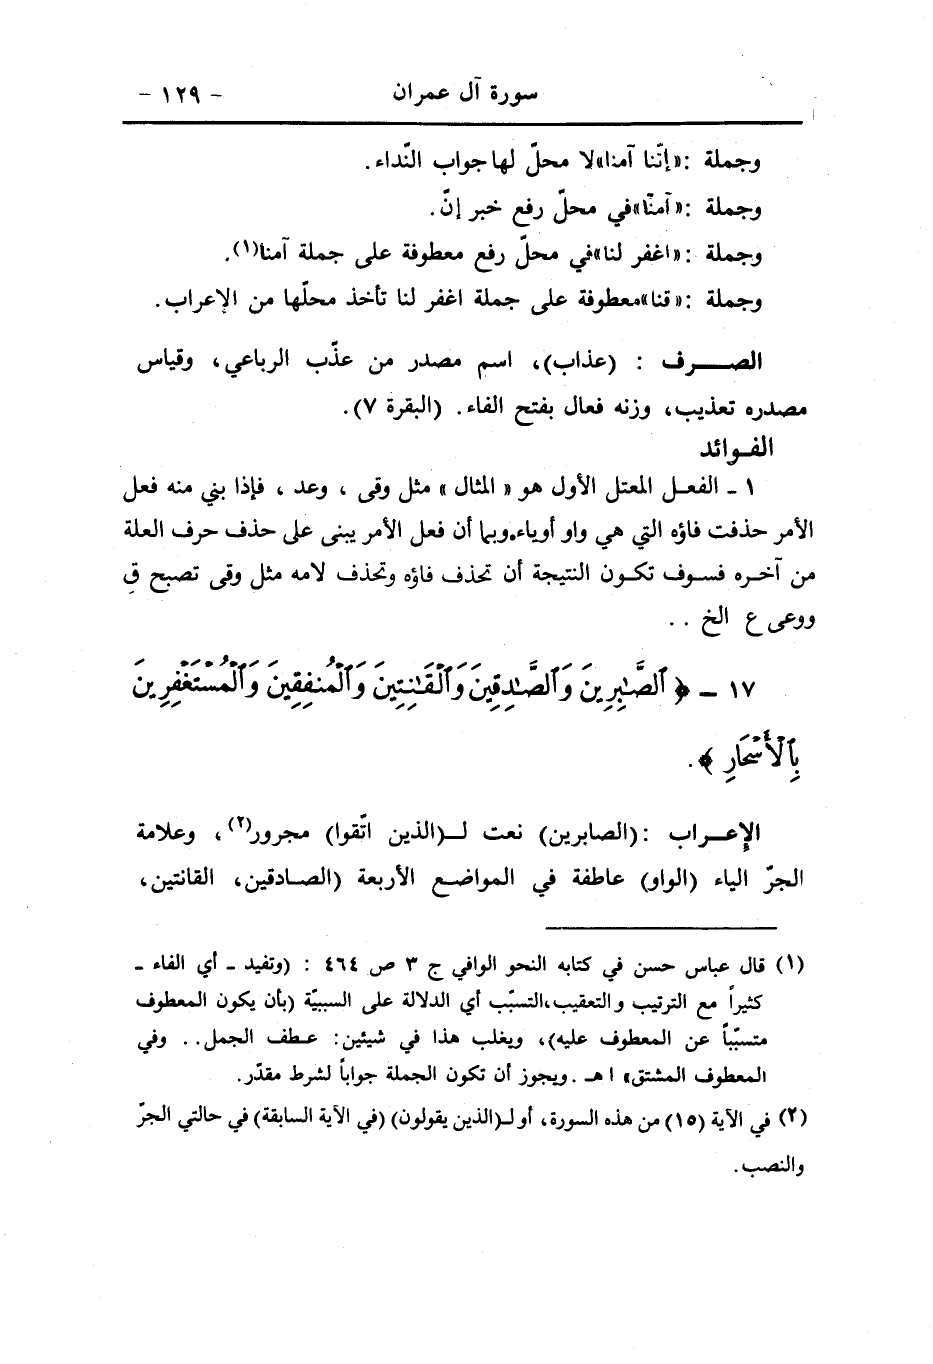 سورة آل عمران - ١٢٩ -
وجملة :«إنّنا آمنا»لا محلّ لها جواب النّداء.
وجملة :«آمنّا»في محلّ رفع خبر إنّ.
وجملة :«اغفر لنا»في محلّ رفع معطوفة على جملة آمنا(١).
وجملة :«قنا»معطوفة على جملة اغفر لنا تأخذ محلّها من الإعراب.
الصـــرف : (عذاب)، اسم مصدر من عذّب الرباعي، وقياس
مصدره تعذيب، وزنه فعال بفتح الفاء. (البقرة ٧).
الفـوائد
١ ـ الفعـل المعتل الأول هو « المثال » مثل وقى ، وعد ، فإذا بني منه فعل
الأمر حذفت فاؤه التي هي واو أوياء.وبما أن فعل الأمر يبنى على حذف حرف العلة
من آخـره فسـوف تكـون النتيجة أن تحذف فاؤه وتحذف لامه مثل وقى تصبح قِ
ووعى ع الخ . .
١٧ ـ ﴿ ٱلصَّٰبِرِينَ وَٱلصَّٰدِقِينَ وَٱلْقَٰنِتِينَ وَٱلْمُنفِقِينَ وَٱلْمُسْتَغْفِرِينَ
بِٱلْأَسْحَارِ ﴾.
الإعـراب :(الصابرين) نعت لــ(الذين اتّقوا) مجرور(٢)، وعلامة
الجرّ الياء (الواو) عاطفة في المواضع الأربعة (الصـادقين، القانتين،
(١) قال عباس حسن في كتابه النحو الوافي ج ٣ ص ٤٦٤ : (وتفيد ـ أي الفاء ـ
كثيراً مع الترتيب والتعقيب،التسبّب أي الدلالة على السببيّة (بأن يكون المعطوف
متسبّباً عن المعطوف عليه)، ويغلب هذا في شيئين: عـطف الجمل.. وفي
المعطوف المشتق» ا هـ .ويجوز أن تكون الجملة جواباً لشرط مقدّر.
(٢) في الآية (١٥) من هذه السورة، أو لـ(الذين يقولون) (في الآية السابقة) في حالتي الجرّ
والنصب.